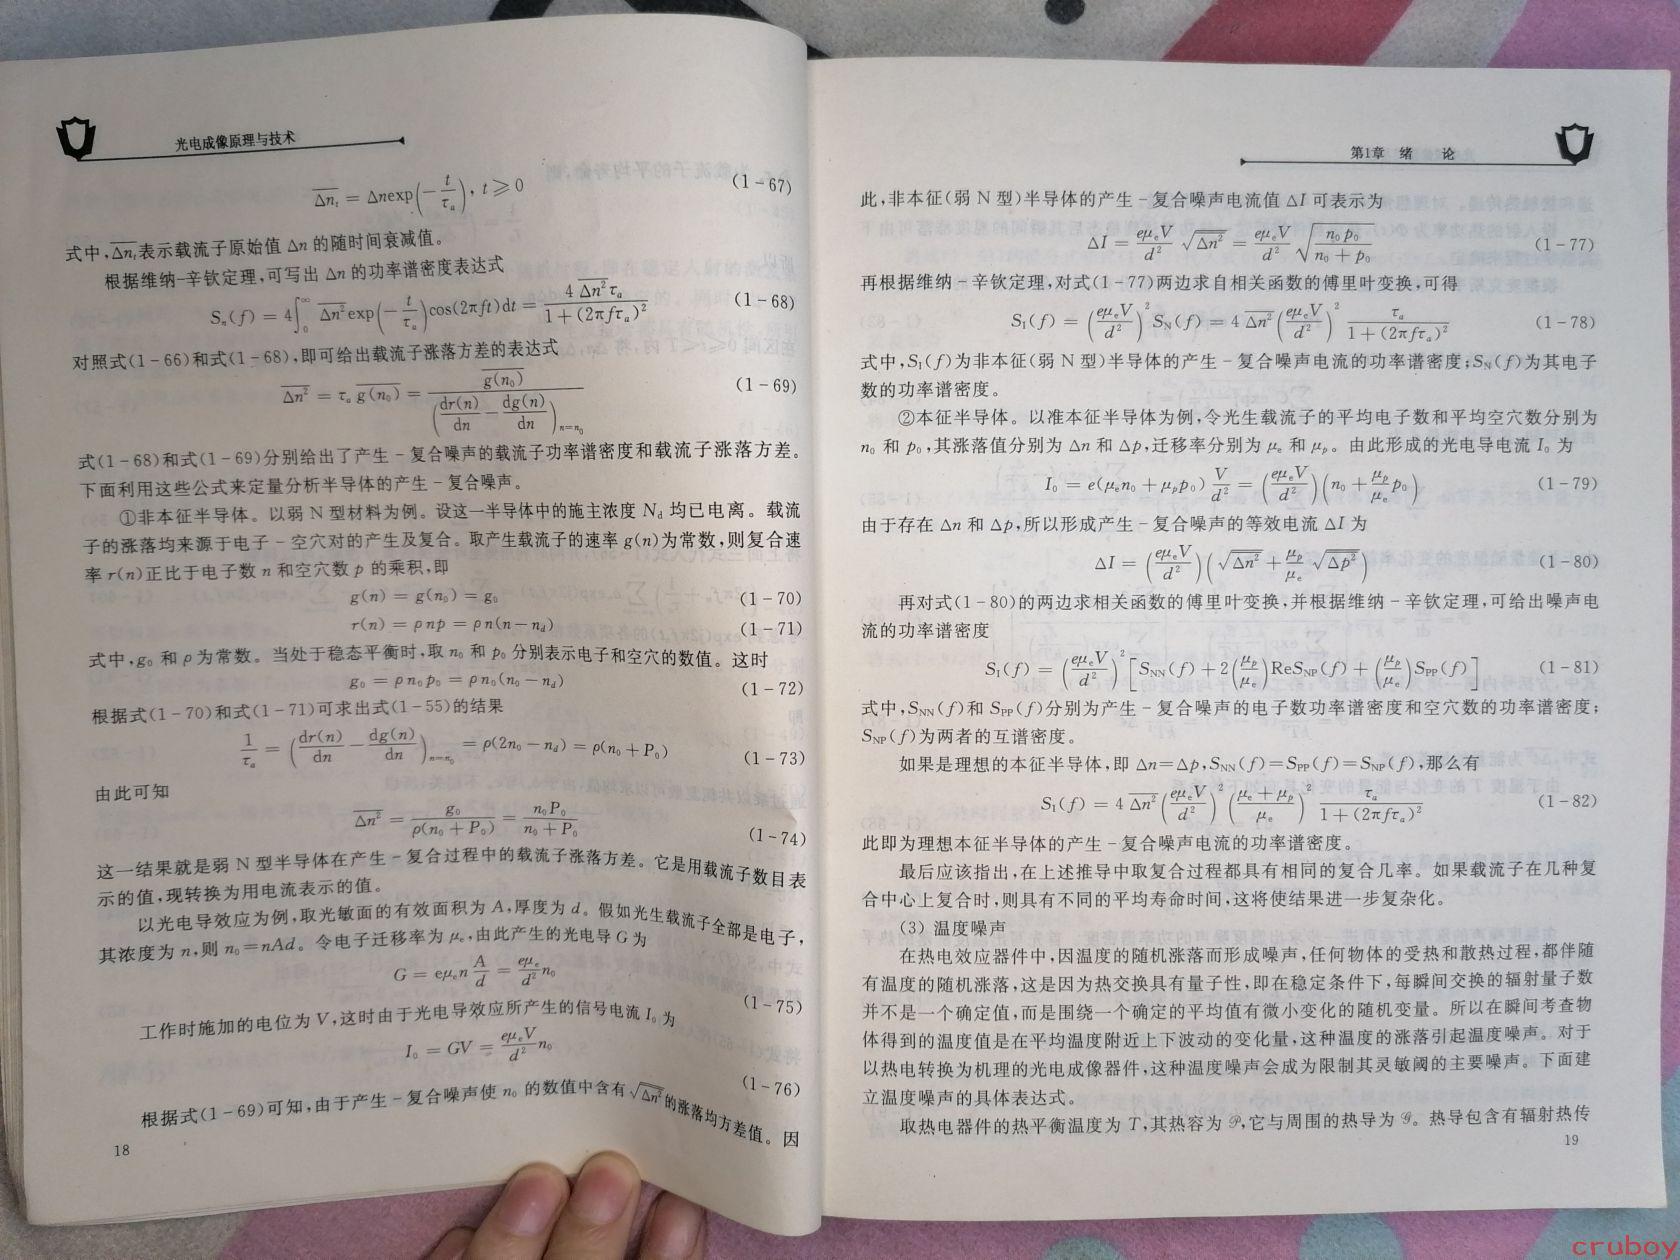 光电成像原理与技术
$\overline{\Delta n_t} = \Delta n \exp\left(-\frac{t}{\tau_a}\right), t \geqslant 0$ (1-67)
式中,$\overline{\Delta n_t}$表示载流子原始值 Δn 的随时间衰减值。
根据维纳-辛钦定理,可写出 Δn 的功率谱密度表达式
$S_n(f) = 4\int_0^\infty \overline{\Delta n^2} \exp\left(-\frac{t}{\tau_a}\right)\cos(2\pi ft)dt = \frac{4\overline{\Delta n^2}\tau_a}{1+(2\pi f\tau_a)^2}$ (1-68)
对照式(1-66)和式(1-68),即可给出载流子涨落方差的表达式
$\overline{\Delta n^2} = \tau_a \overline{g(n_0)} = \frac{\overline{g(n_0)}}{\left(\frac{dr(n)}{dn} - \frac{dg(n)}{dn}\right)_{n=n_0}}$ (1-69)
式(1-68)和式(1-69)分别给出了产生-复合噪声的载流子功率谱密度和载流子涨落方差。
下面利用这些公式来定量分析半导体的产生-复合噪声。
①非本征半导体。以弱 N 型材料为例。设这一半导体中的施主浓度 $N_d$ 均已电离。载流
子的涨落均来源于电子-空穴对的产生及复合。取产生载流子的速率 g(n)为常数,则复合速
率 r(n)正比于电子数 n 和空穴数 p 的乘积,即
$g(n) = g(n_0) = g_0$ (1-70)
$r(n) = \rho np = \rho n(n-n_d)$ (1-71)
式中,$g_0$ 和 ρ 为常数。当处于稳态平衡时,取 $n_0$ 和 $p_0$ 分别表示电子和空穴的数值。这时
$g_0 = \rho n_0 p_0 = \rho n_0(n_0 - n_d)$ (1-72)
根据式(1-70)和式(1-71)可求出式(1-55)的结果
$\frac{1}{\tau_a} = \left(\frac{dr(n)}{dn} - \frac{dg(n)}{dn}\right)_{n=n_0} = \rho(2n_0 - n_d) = \rho(n_0 + P_0)$ (1-73)
由此可知
$\overline{\Delta n^2} = \frac{g_0}{\rho(n_0+P_0)} = \frac{n_0 P_0}{n_0+P_0}$ (1-74)
这一结果就是弱 N 型半导体在产生-复合过程中的载流子涨落方差。它是用载流子数目表
示的值,现转换为用电流表示的值。
以光电导效应为例,取光敏面的有效面积为 A,厚度为 d。假如光生载流子全部是电子,
其浓度为 n,则 $n_0$=nAd。令电子迁移率为 $\mu_e$,由此产生的光电导 G 为
$G = e\mu_e n\frac{A}{d} = \frac{e\mu_e}{d^2}n_0$ (1-75)
工作时施加的电位为 V,这时由于光电导效应所产生的信号电流 $I_0$ 为
$I_0 = GV = \frac{e\mu_e V}{d^2}n_0$ (1-76)
根据式(1-69)可知,由于产生-复合噪声使 $n_0$ 的数值中含有$\sqrt{\overline{\Delta n^2}}$的涨落均方差值。因
18
第1章 绪 论
此,非本征(弱 N 型)半导体的产生-复合噪声电流值 ΔI 可表示为
$\Delta I = \frac{e\mu_e V}{d^2}\sqrt{\overline{\Delta n^2}} = \frac{e\mu_e V}{d^2}\sqrt{\frac{n_0 p_0}{n_0+p_0}}$ (1-77)
再根据维纳-辛钦定理,对式(1-77)两边求自相关函数的傅里叶变换,可得
$S_I(f) = \left(\frac{e\mu_e V}{d^2}\right)^2 S_N(f) = 4\overline{\Delta n^2}\left(\frac{e\mu_e V}{d^2}\right)^2 \frac{\tau_a}{1+(2\pi f\tau_a)^2}$ (1-78)
式中,$S_I(f)$为非本征(弱 N 型)半导体的产生-复合噪声电流的功率谱密度;$S_N(f)$为其电子
数的功率谱密度。
②本征半导体。以准本征半导体为例,令光生载流子的平均电子数和平均空穴数分别为
$n_0$ 和 $p_0$,其涨落值分别为 Δn 和 Δp,迁移率分别为 $\mu_e$ 和 $\mu_p$。由此形成的光电导电流 $I_0$ 为
$I_0 = e(\mu_e n_0 + \mu_p p_0)\frac{V}{d^2} = \left(\frac{e\mu_e V}{d^2}\right)\left(n_0 + \frac{\mu_p}{\mu_e}p_0\right)$ (1-79)
由于存在 Δn 和 Δp,所以形成产生-复合噪声的等效电流 ΔI 为
$\Delta I = \left(\frac{e\mu_e V}{d^2}\right)\left(\sqrt{\overline{\Delta n^2}} + \frac{\mu_p}{\mu_e}\sqrt{\overline{\Delta p^2}}\right)$ (1-80)
再对式(1-80)的两边求相关函数的傅里叶变换,并根据维纳-辛钦定理,可给出噪声电
流的功率谱密度
$S_I(f) = \left(\frac{e\mu_e V}{d^2}\right)^2\left[S_{NN}(f) + 2\left(\frac{\mu_p}{\mu_e}\right)ReS_{NP}(f) + \left(\frac{\mu_p}{\mu_e}\right)S_{PP}(f)\right]$ (1-81)
式中,$S_{NN}(f)$和 $S_{PP}(f)$分别为产生-复合噪声的电子数功率谱密度和空穴数的功率谱密度;
$S_{NP}(f)$为两者的互谱密度。
如果是理想的本征半导体,即 Δn=Δp,$S_{NN}(f)=S_{PP}(f)=S_{NP}(f)$,那么有
$S_I(f) = 4\overline{\Delta n^2}\left(\frac{e\mu_e V}{d^2}\right)^2\left(\frac{\mu_e+\mu_p}{\mu_e}\right)^2\frac{\tau_a}{1+(2\pi f\tau_a)^2}$ (1-82)
此即为理想本征半导体的产生-复合噪声电流的功率谱密度。
最后应该指出,在上述推导中取复合过程都具有相同的复合几率。如果载流子在几种复
合中心上复合时,则具有不同的平均寿命时间,这将使结果进一步复杂化。
(3) 温度噪声
在热电效应器件中,因温度的随机涨落而形成噪声,任何物体的受热和散热过程,都伴随
有温度的随机涨落,这是因为热交换具有量子性,即在稳定条件下,每瞬间交换的辐射量子数
并不是一个确定值,而是围绕一个确定的平均值有微小变化的随机变量。所以在瞬间考查物
体得到的温度值是在平均温度附近上下波动的变化量,这种温度的涨落引起温度噪声。对于
以热电转换为机理的光电成像器件,这种温度噪声会成为限制其灵敏阈的主要噪声。下面建
立温度噪声的具体表达式。
取热电器件的热平衡温度为 T,其热容为 𝒫,它与周围的热导为 𝒢。热导包含有辐射热传
19
cruboy